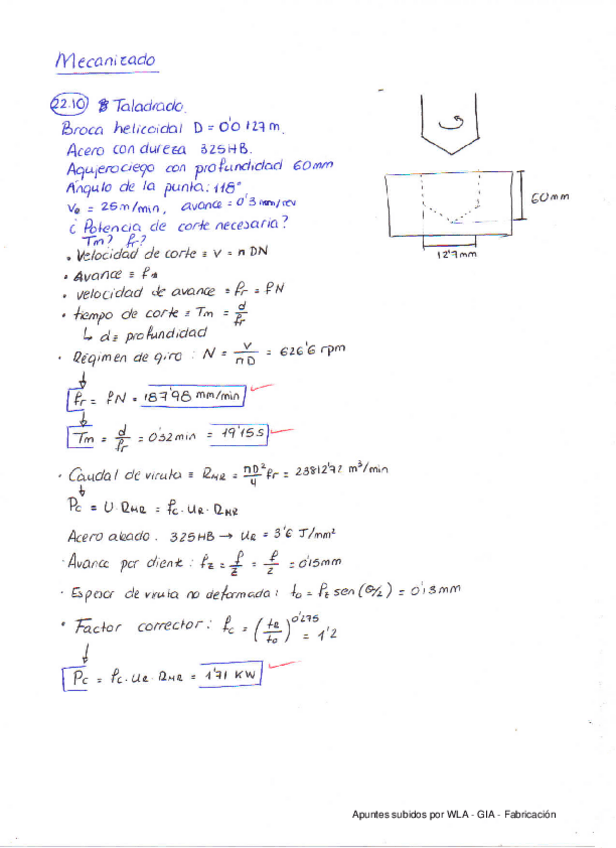 Mecanizado
22.10 Taladrado.
Broca helicoidal D = 0'0127m.
Acero con dureza 325HB.
Agujero ciego con profundidad 60mm
Ángulo de la punta: 118°
Vc = 25m/min, avance = 0'3 mm/rev
¿ Potencia de corte necesaria?
Tm? fr?
60mm
12'7mm
• Velocidad de corte ≡ v = π DN
• Avance ≡ f
• velocidad de avance ≡ fr = fN
• tiempo de corte ≡ Tm = d/fr
↳ d ≡ profundidad
· Régimen de giro : N = v/πD = 626'6 rpm
fr = fN = 187'98 mm/min
Tm = d/fr = 0'32min = 19'15 s
· Caudal de viruta ≡ RMR = πD²/4 fr = 23812'72 m³/min
Pc = U · RMR = fc · UR · RMR
Acero aleado . 325HB → UR = 3'6 J/mm²
· Avance por diente : fz = f/z = f/2 = 0'15mm
· Espesor de viruta no deformada : to = fz sen (θ/2) = 0'13mm
• Factor corrector : fc = (tR/to)^0'275 = 1'2
Pc = fc · UR · RMR = 1'71 KW
Apuntes subidos por WLA - GIA - Fabricación